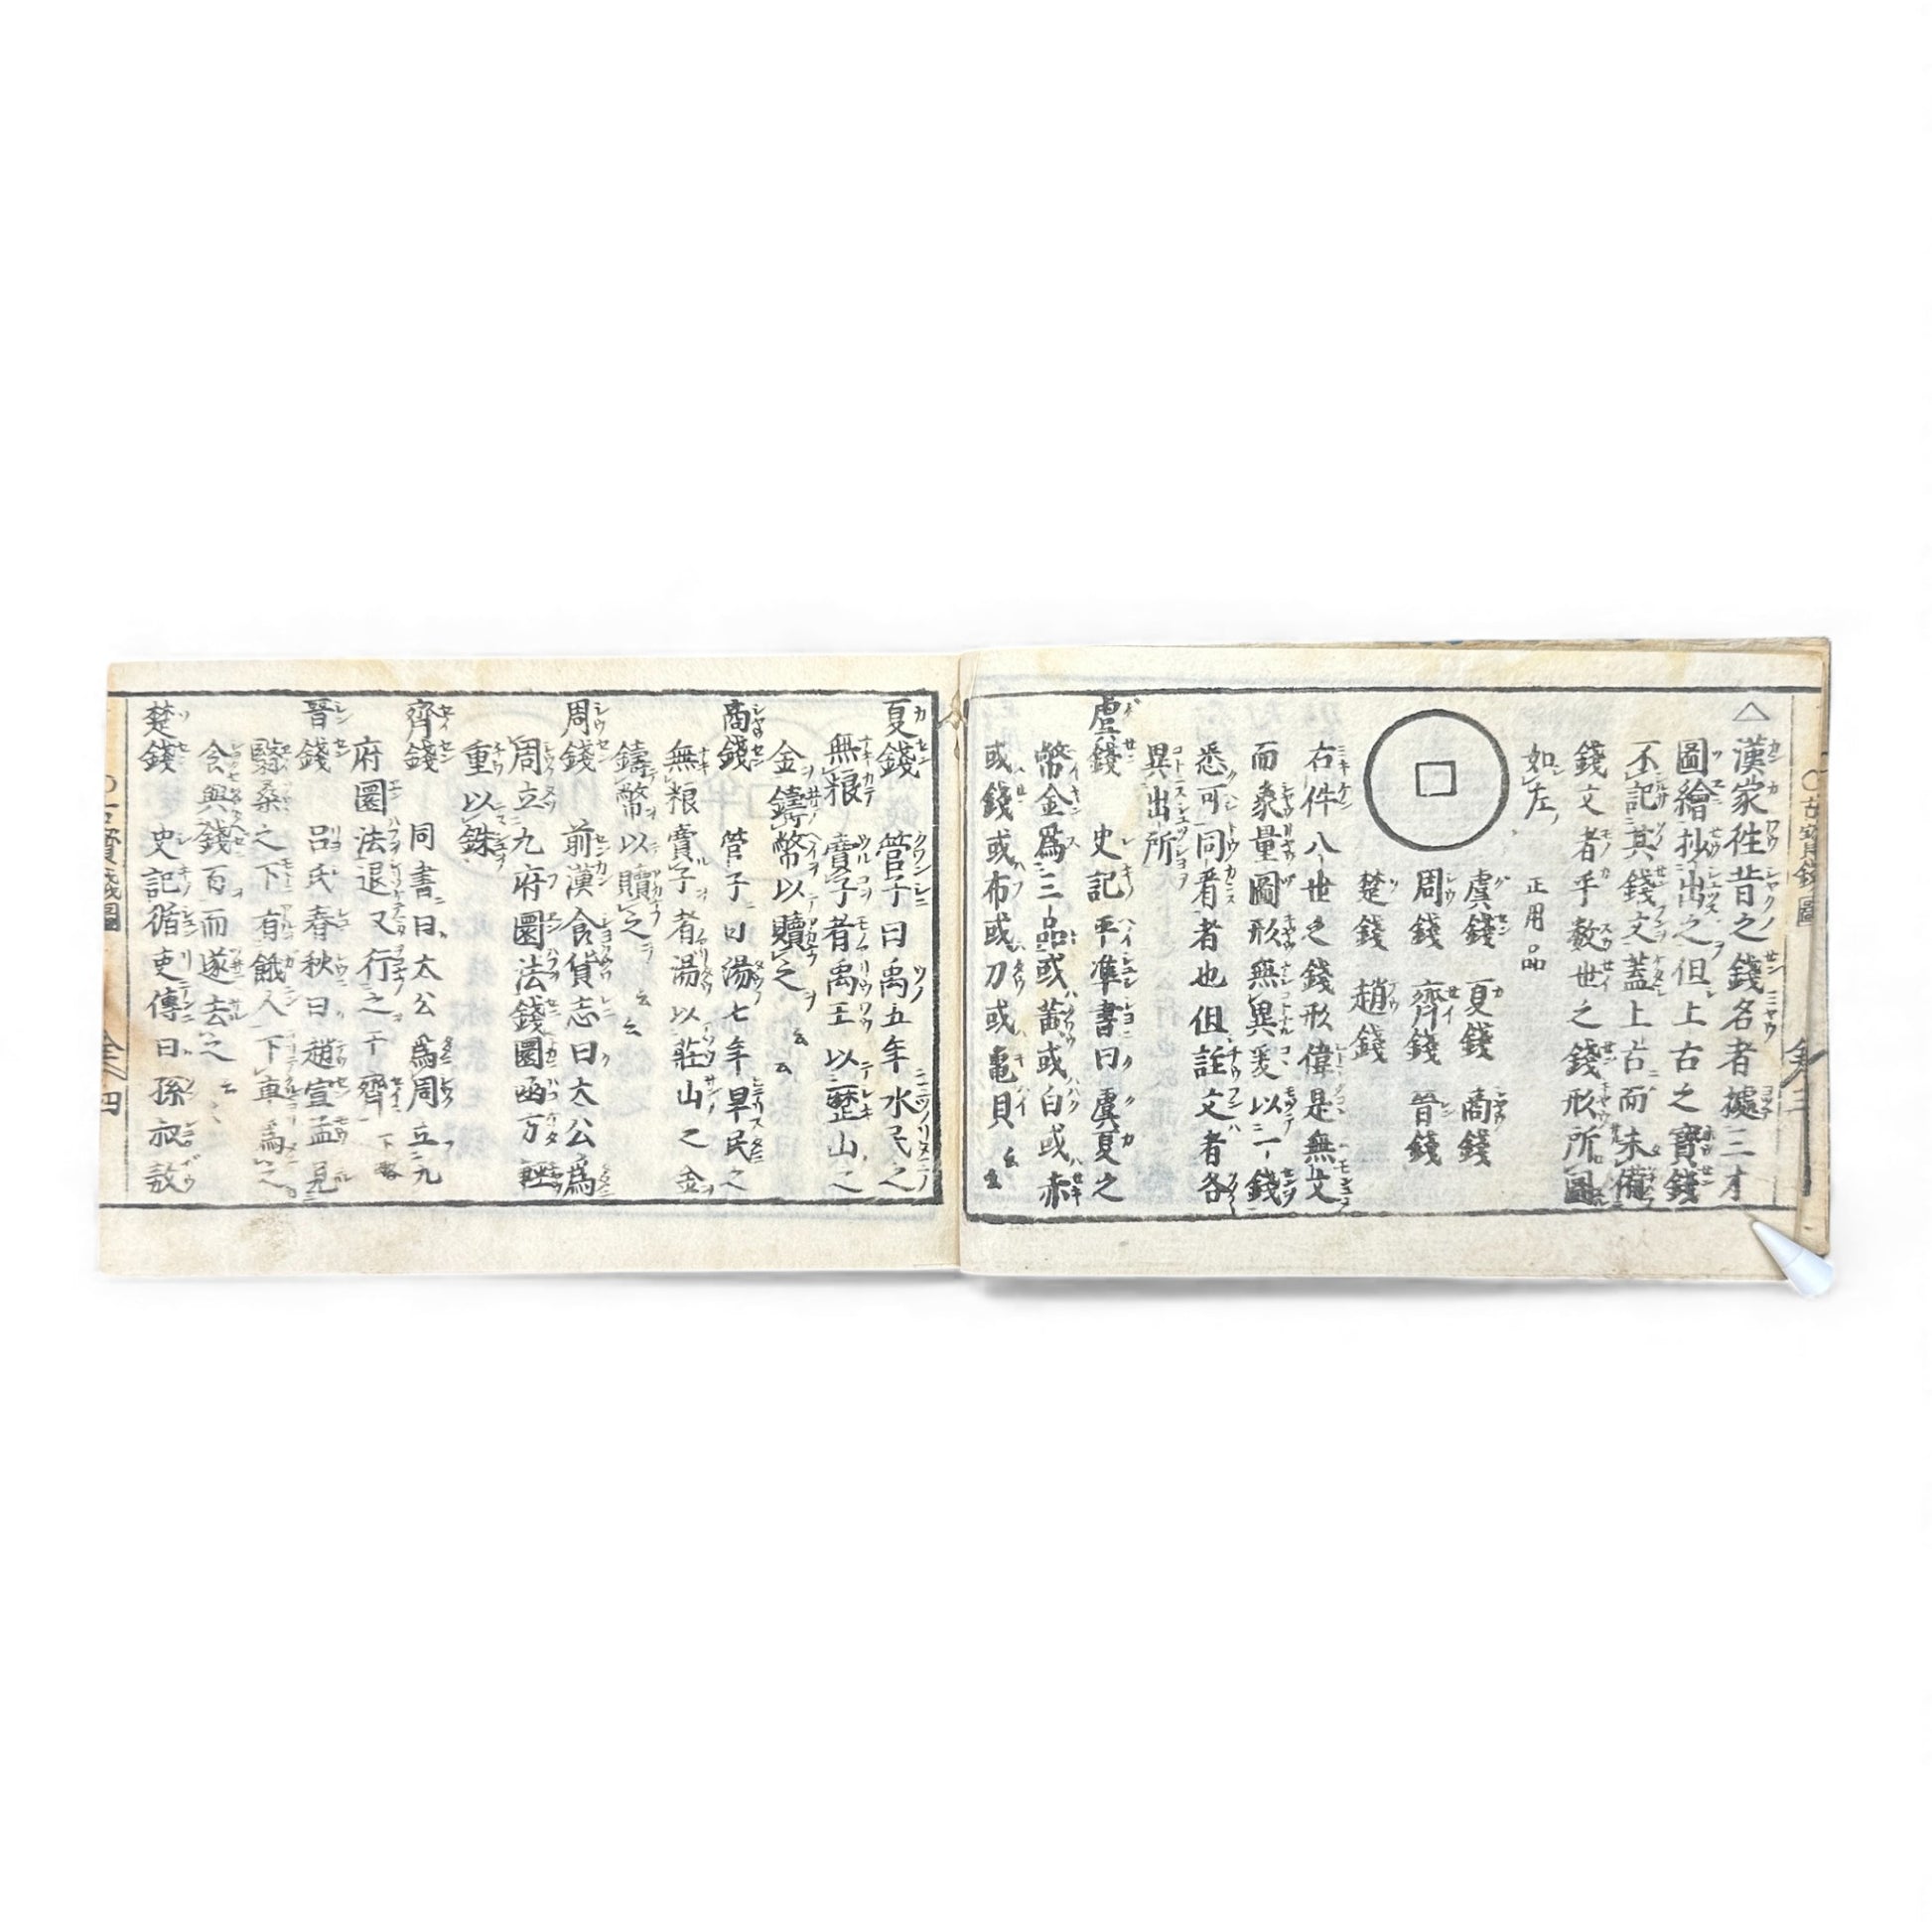 △漢家徃昔之錢名者據三才
圖繪抄出之但上古之寳錢
不記其錢文蓋上古而未備
錢文者乎數世之錢形所圖
如左 正用品
虞錢 夏錢 商錢
周錢 齊錢 晉錢
楚錢 趙錢
右件八世之錢形偉是無文
而象量圖形無異爰以一錢
悉可同看者也但註文者各
異出所
虞錢 史記平準書曰虞夏之
幣金爲三品或黃或白或赤
或錢或布或刀或龜貝云云
夏錢 管子曰禹五年水民之
無粮賣子者禹王以歷山之
金鑄幣以贖之云云
商錢 管子曰湯七年旱民之
無粮賣子者湯以莊山之金
鑄幣以贖之云云
周錢 前漢食貨志曰太公爲
周立九府圜法錢圜函方輕
重以銖
齊錢 同書曰太公爲周立九
府圜法退又行之于齊下略
晉錢 呂氏春秋曰趙宣孟見
翳桑之下有餓人下車爲之
食與錢百而遂去之云云
楚錢 史記循吏傳曰孫叔敖